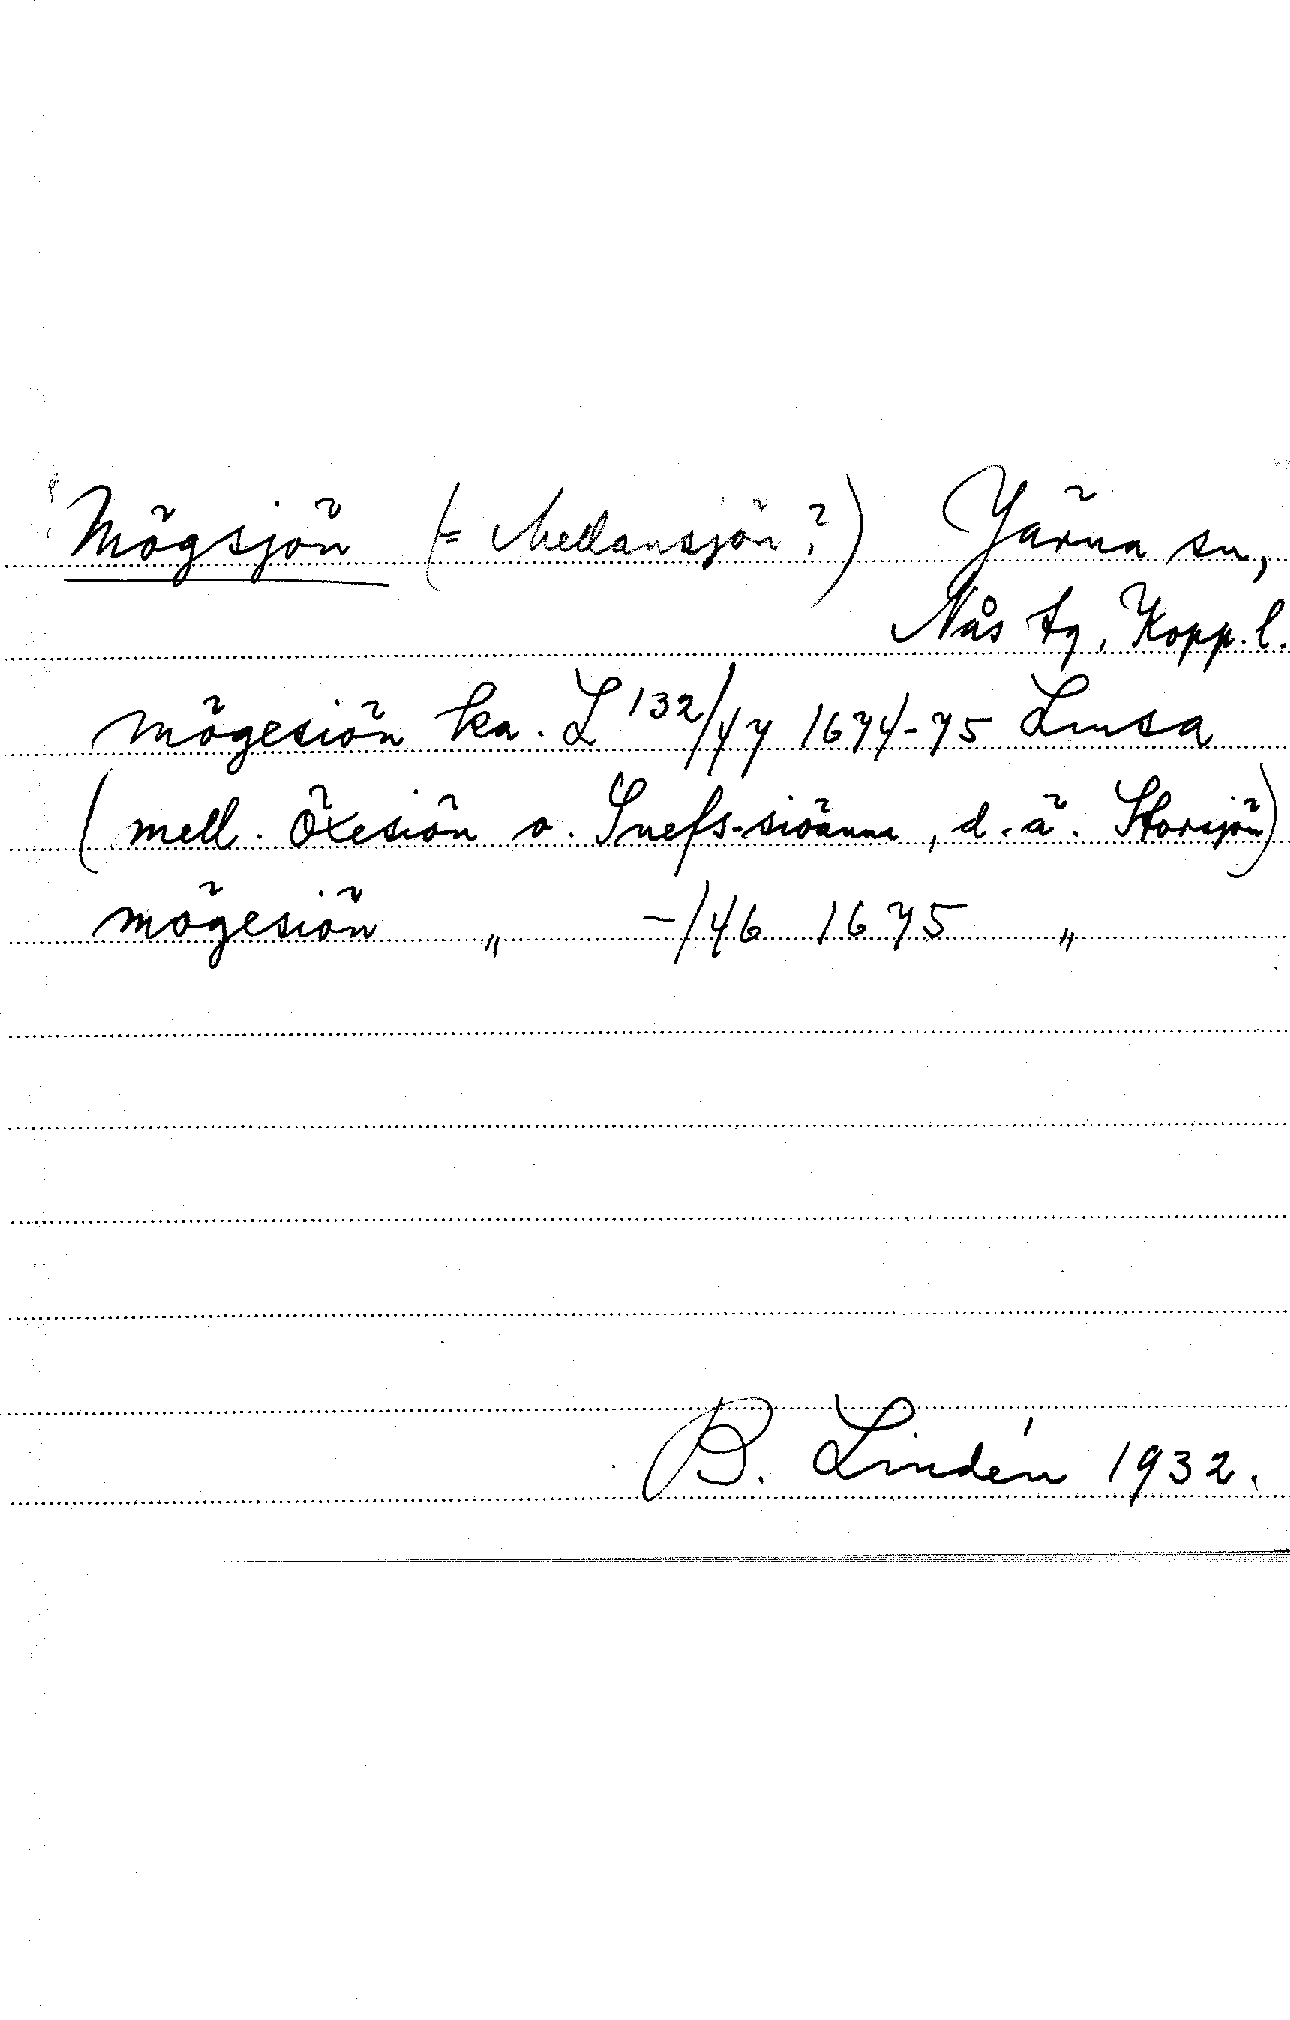 Mögsjön (= Mellansjön?) Järna sn,
Nås tg, Kopp. l.
mögesiön ka. L 132/47 1674-75 Lmsa
(mell. Öxesiön o. Snefs-siöänna, d.ä. Storsjön)
mögesiön „ -/46 1675 „
B. Lindén 1932.